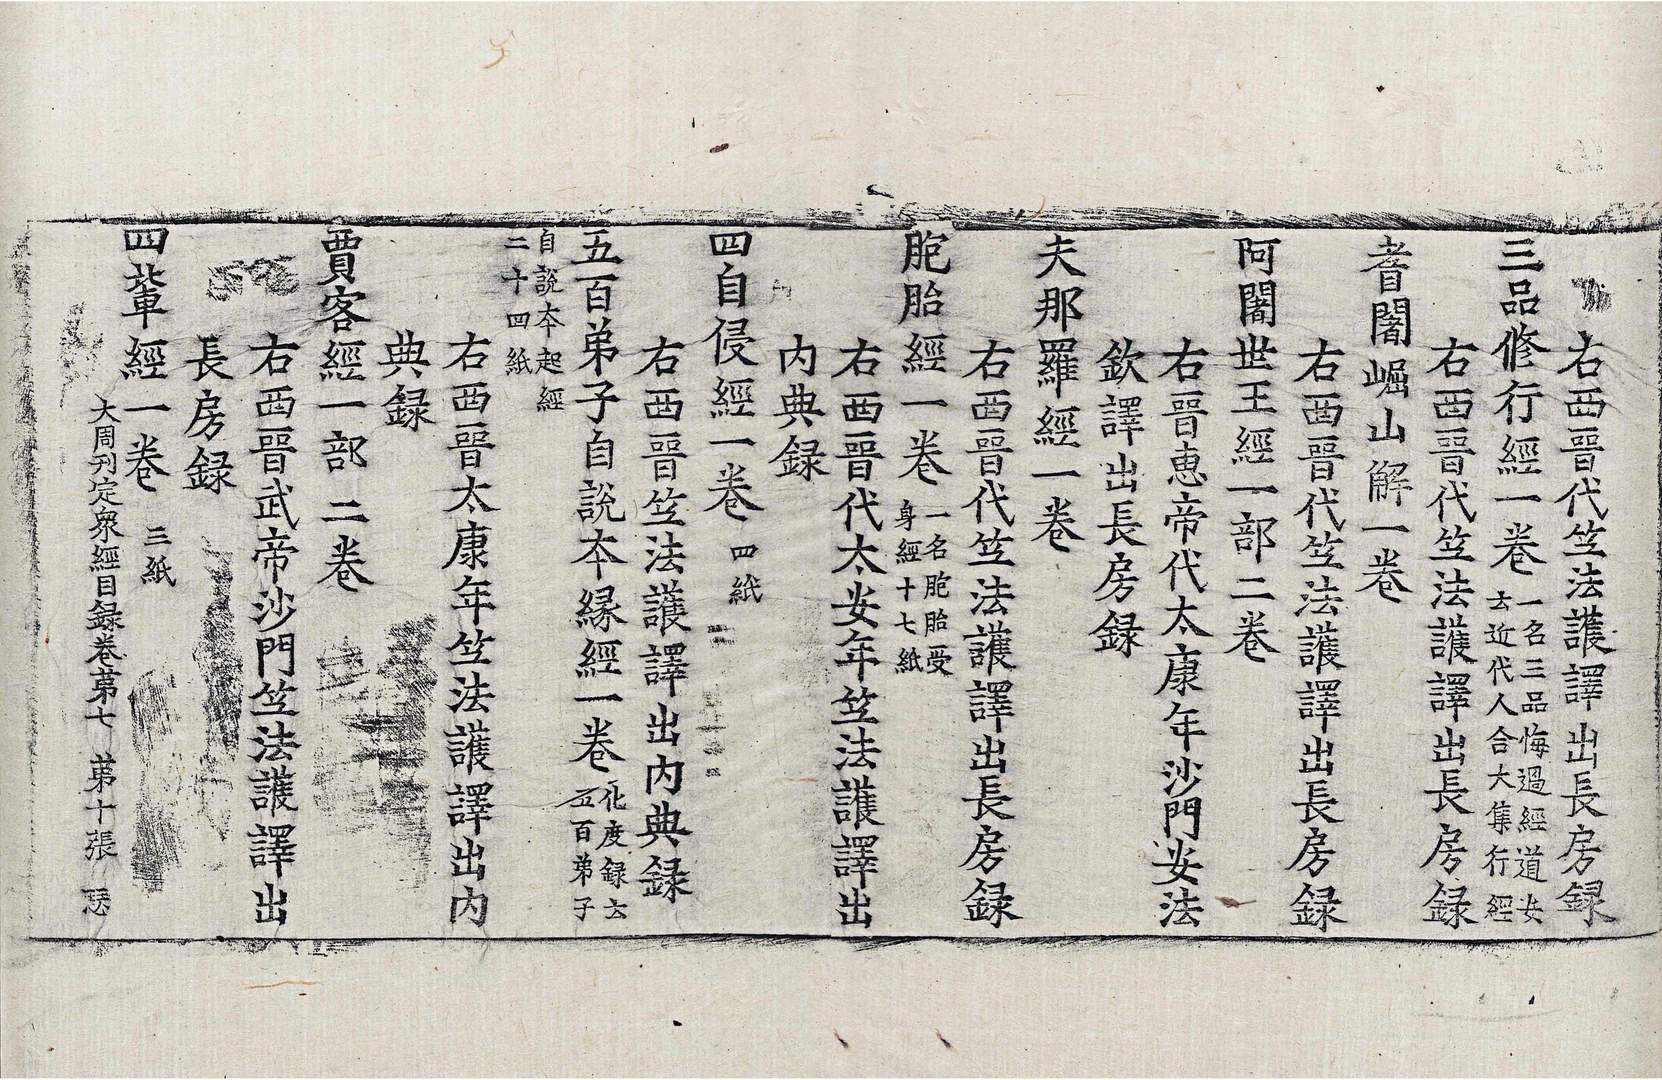 右西晉代竺法護譯出長房録
三品修行經一卷一名三品悔過經道安
云近代人合大集行經
右西晉代竺法護譯出長房録
耆闍崛山解一卷
右西晉代竺法護譯出長房録
阿闍世王經一部二卷
右晉惠帝代太康年沙門安法
欽譯出長房録
夫那羅經一卷
右西晉代竺法護譯出長房録
胞胎經一卷一名胞胎受
身經十七紙
右西晉代太安年竺法護譯出
内典録
四自侵經一卷四紙
右西晉竺法護譯出内典録
五百弟子自說本縁經一卷仛度録云
五百弟子
自說本起經
二十四紙
右西晉太康年竺法護譯出内
典録
賈客經一部二卷
右西晉武帝沙門竺法護譯出
長房録
四輩經一卷三紙
大周刋定衆經目録卷苐七 苐十張